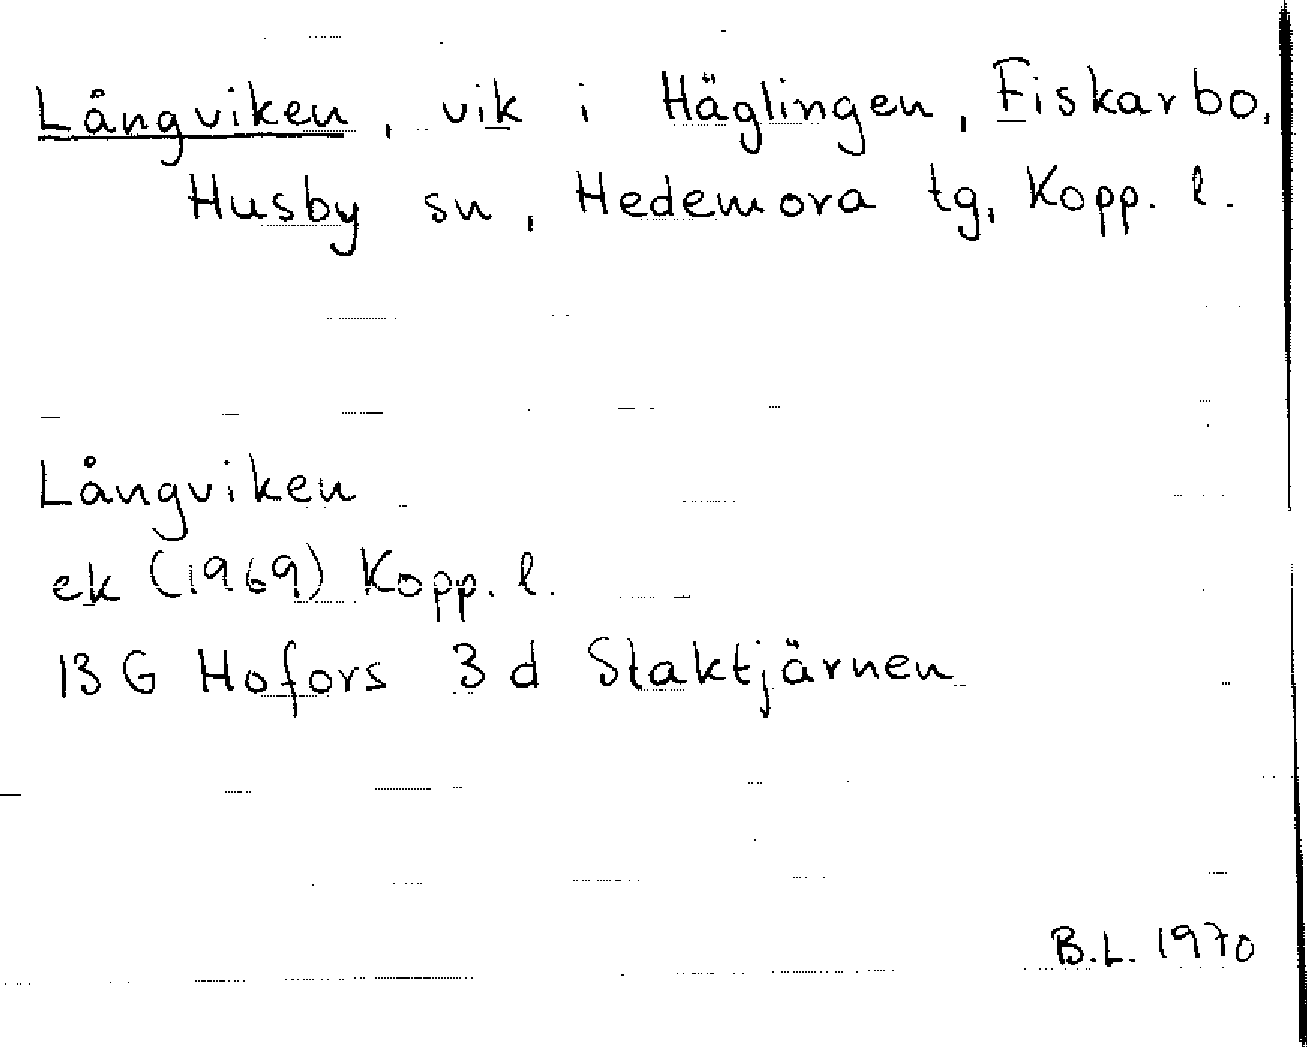 Långviken, vik i Häglingen, Fiskarbo,
Husby sn, Hedemora tg, Kopp. l.
Långviken
ek (1969) Kopp. l.
13 G Hofors 3 d Staktjärnen
B.L. 1970